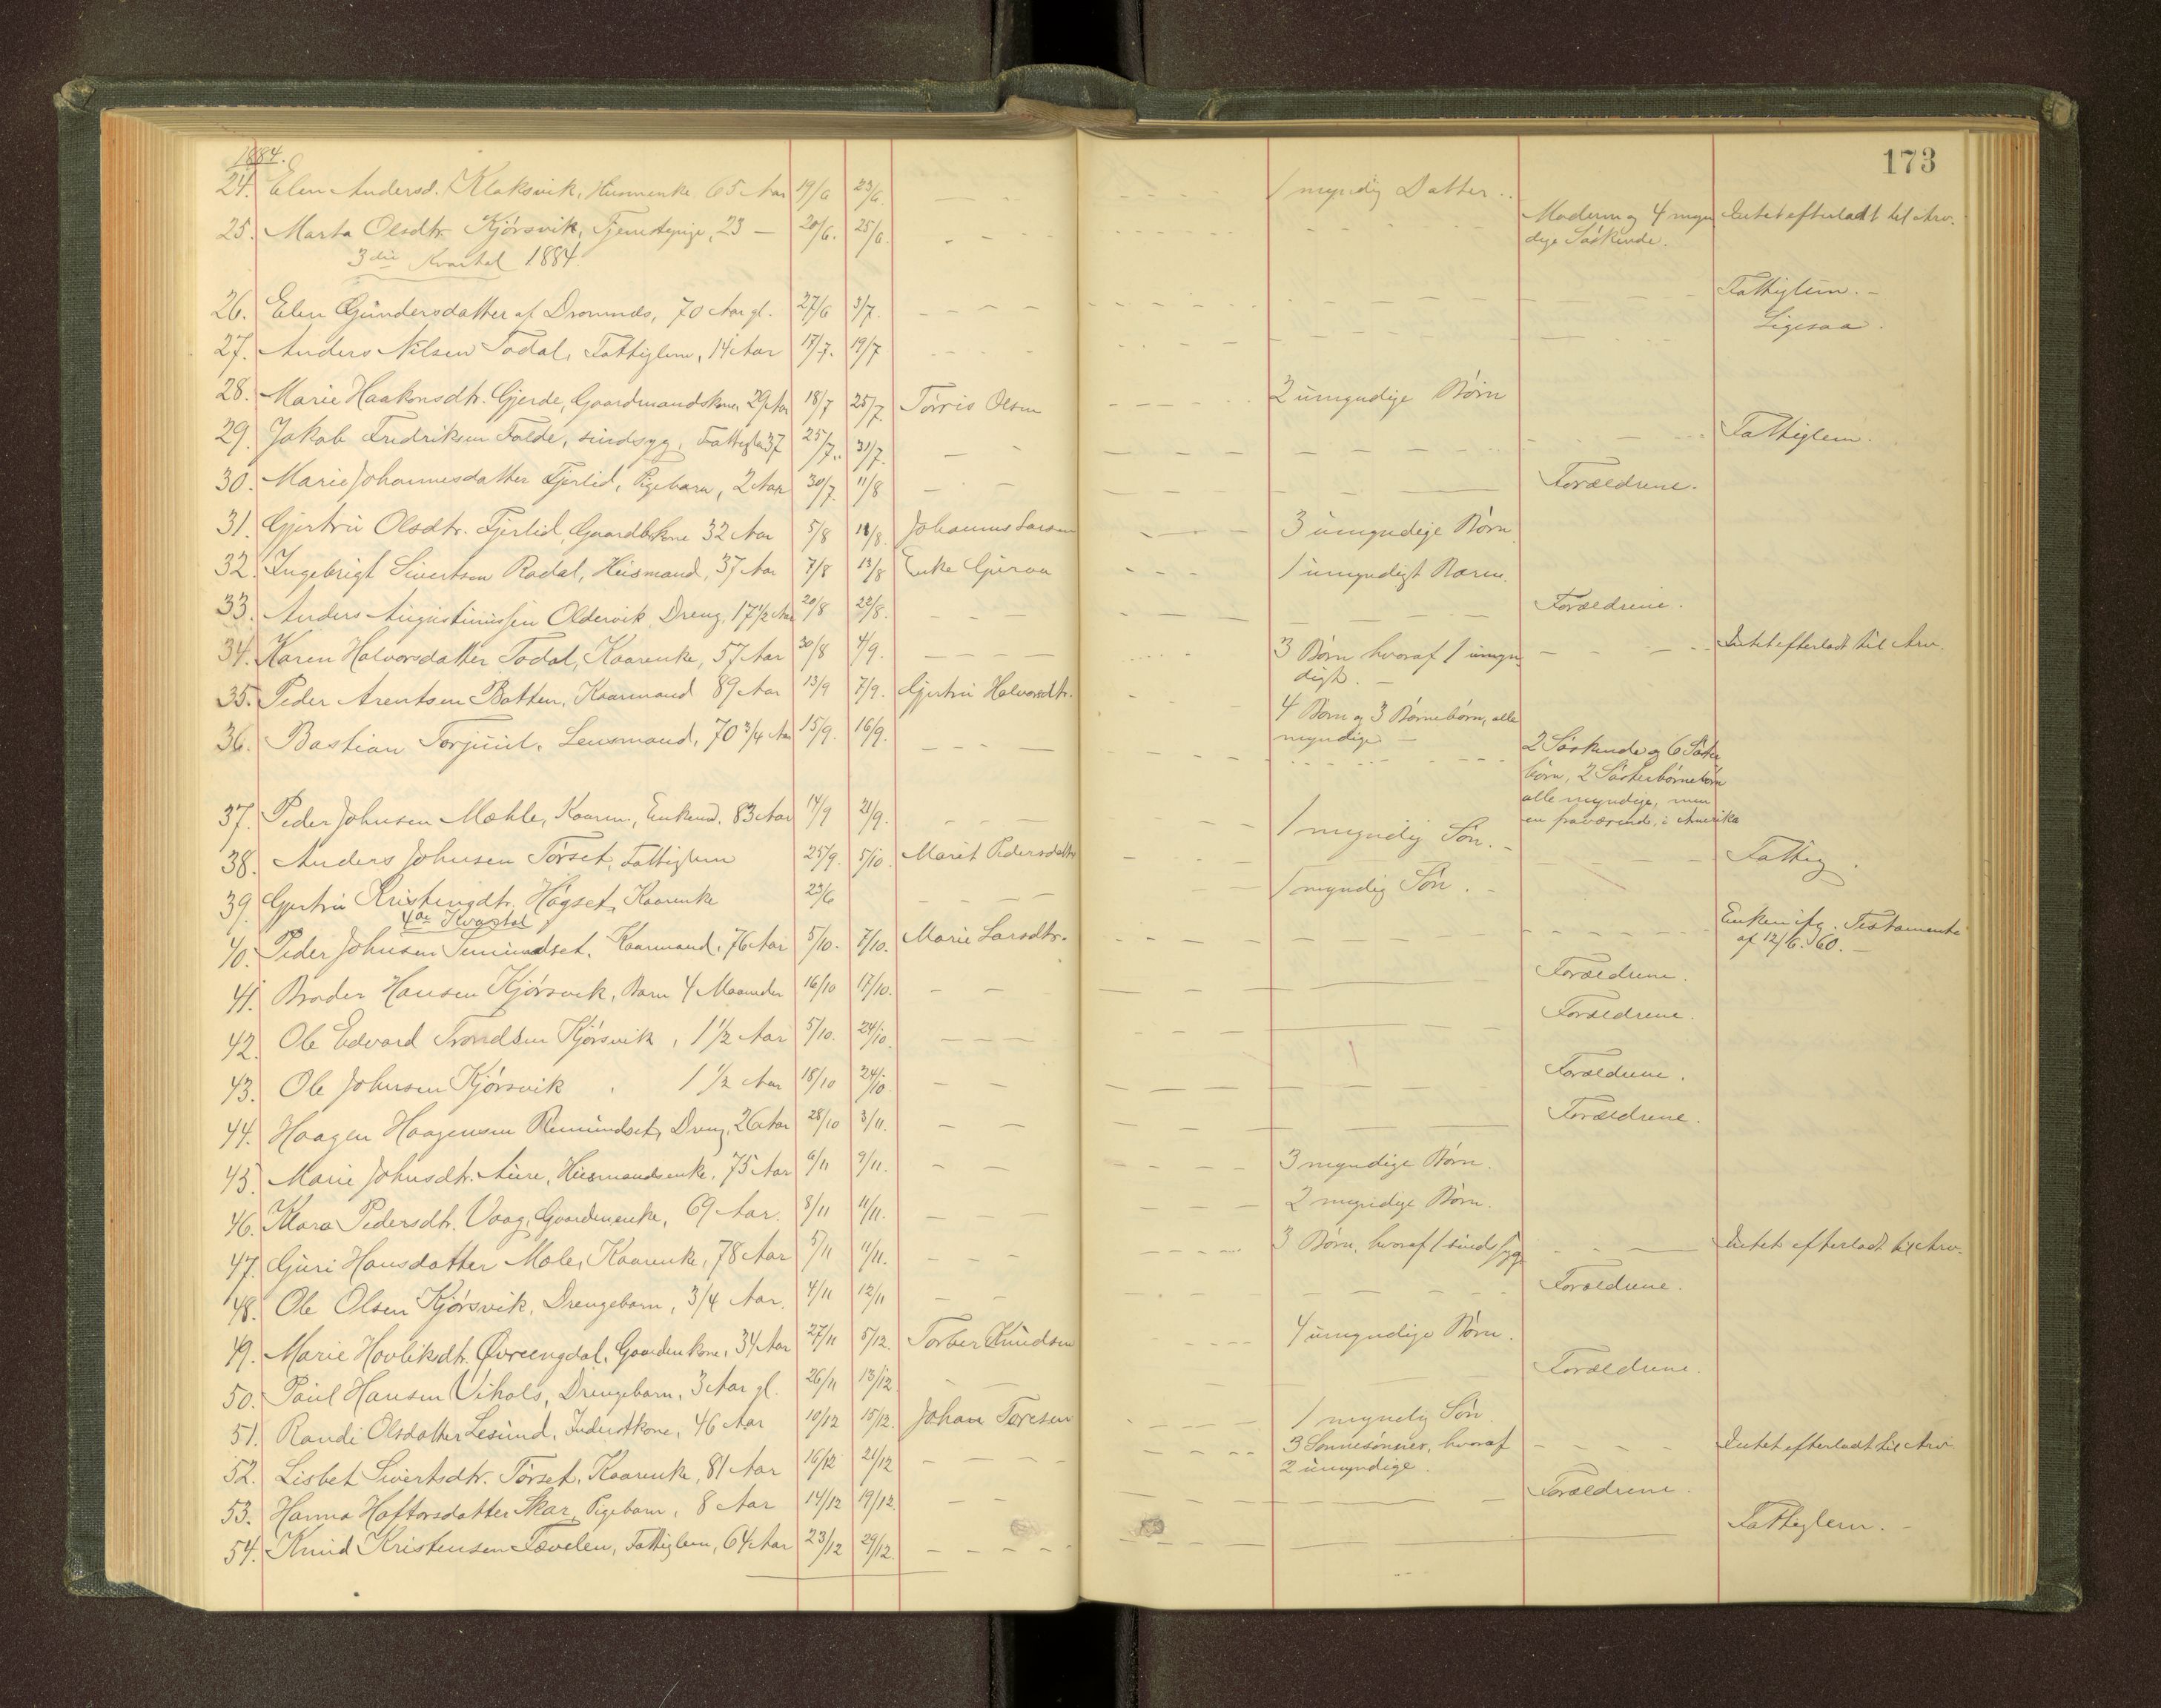 173
1884.
24. Elen Andersd. Klaksvik, Husmenke 65 Aar 19/6 23/6. 1 myndig Datter.
25. Marta Olsdtr. Kjörsvik, Tjenestepige, 23 — 20/6. 25/6 Moderen og 4 myn Intet efterladt til Arv.
dige Söskende.
3die Kvartal 1884.
26. Elen Gundersdatter af Dromnes, 70 Aar gl. 27/6 3/7. Fattiglem. —
27. Anders Nilsen Todal, Fattiglem, 14 Aar 17/7. 19/7 Ligesaa.
28. Marie Haakonsdtr. Gjerde, Gaardmandskone, 29 Aar 18/7 25/7. Törris Olsen 2 umyndige Börn
29. Jakob Fredriksen Folde, sindsyg, Fattigle 37 25/7. 31/7. Fattiglem.
30. Marie Johannesdatter Fjerlid, Pigebarn, 2 Aar 30/7. 11/8 Forældrene.
31. Gjertru Olsdtr. Fjerlid, Gaardbkone 32 Aar 5/8 11/8. Johannes Larsen 3 umyndige Börn.
32. Ingebrigt Sivertsen Rodal, Husmand, 37 Aar 7/8 13/8 Enke Gjuroa 1 umyndigt Barn.
33. Anders Augustinussen Oldervik, Dreng, 17 1/2 Aar 20/8 22/8. Forældrene.
34. Karen Halvorsdatter Todal, Kaarenke, 57 Aar 30/8 4/9. 3 Börn hvoraf 1 umyn Intet efterladt til Arv.
digt. —
35. Peder Arentsen Botten, Kaarmand 89 Aar 13/9 7/9. Gjertru Halvorsdtr. 4 Börn og 3 Börnebörn, alle
myndige —
36. Bastian Torjuul, Lensmand, 70 3/4 Aar 15/9. 16/9. 2 Söskende og 6 Söster
börn, 2 Sösterbörnebörn
alle myndige, men
en fraværende, i Amerika
37. Peder Johnsen Mæhle, Kaarm., Enkemd. 83 Aar 14/9 21/9. 1 myndig Sön. —
38. Anders Johnsen Törset, Fattiglem 25/9. 5/10. Marit Pedersdatter Fattig.
39. Gjertru Kristensdtr. Högset, Kaarenke 23/6 1 myndig Sön. —
4de Kvartal
40. Peder Johnsen Semundset, Kaarmand, 76 Aar 5/10. 7/10. Marie Larsdtr. Enken ifg. Testamente
af 12/6. 60. —
41. Broder Hansen Kjörsvik, Barn 4 Maaneder 16/10 17/10. Forældrene.
42. Ole Edvard Trondsen Kjörsvik, 1 1/2 Aar 5/10. 24/10. Forældrene.
43. Ole Johnsen Kjörsvik 1 1/2 Aar 18/10 24/10. Forældrene.
44. Haagen Haagensen Remundset, Dreng, 26 Aar 28/10 3/11. Forældrene.
45. Marie Johnsdtr. Aure, Husmandsenke, 75 Aar 6/11 9/11. 3 myndige Börn.
46. Klara Pedersdtr. Vaag, Gaardmenke, 69 Aar. 8/11 11/11. 2 myndige Börn.
47. Guri Hansdatter Mole, Kaarenke, 78 Aar 5/11 11/11. 3 Börn, hvoraf 1 sindssyg Intet efterladt til Arv.
48. Ole Olsen Kjörsvik, Drengebarn, 3/4 Aar. 4/11 12/11 Forældrene.
49. Marie Hovliksdt. Øvreengdal, Gaardmkone, 34 Aar 27/11 5/12. Torber Knudsen 4 umyndige Börn.
50. Paul Hansen Vihals, Drengebarn, 3 Aar gl. 26/11 13/12. Forældrene.
51. Randi Olsdatter Lesund, Inderstkone, 46 Aar 10/12 15/12. Johan Toresen 1 myndig Sön.
52. Lisbet Sivertsdtr. Törset, Kaarenke, 81 Aar 16/12 21/12 3 Sönnesönner, hvoraf Intet efterladt til Arv.
2 umyndige.
53. Hanna Haftorsdatter Skar, Pigebarn, 8 Aar 14/12 19/12. Forældrene.
54. Knud Kristensen Tævelen, Fattiglem, 64 Aar 23/12 29/12. Fattiglem. —